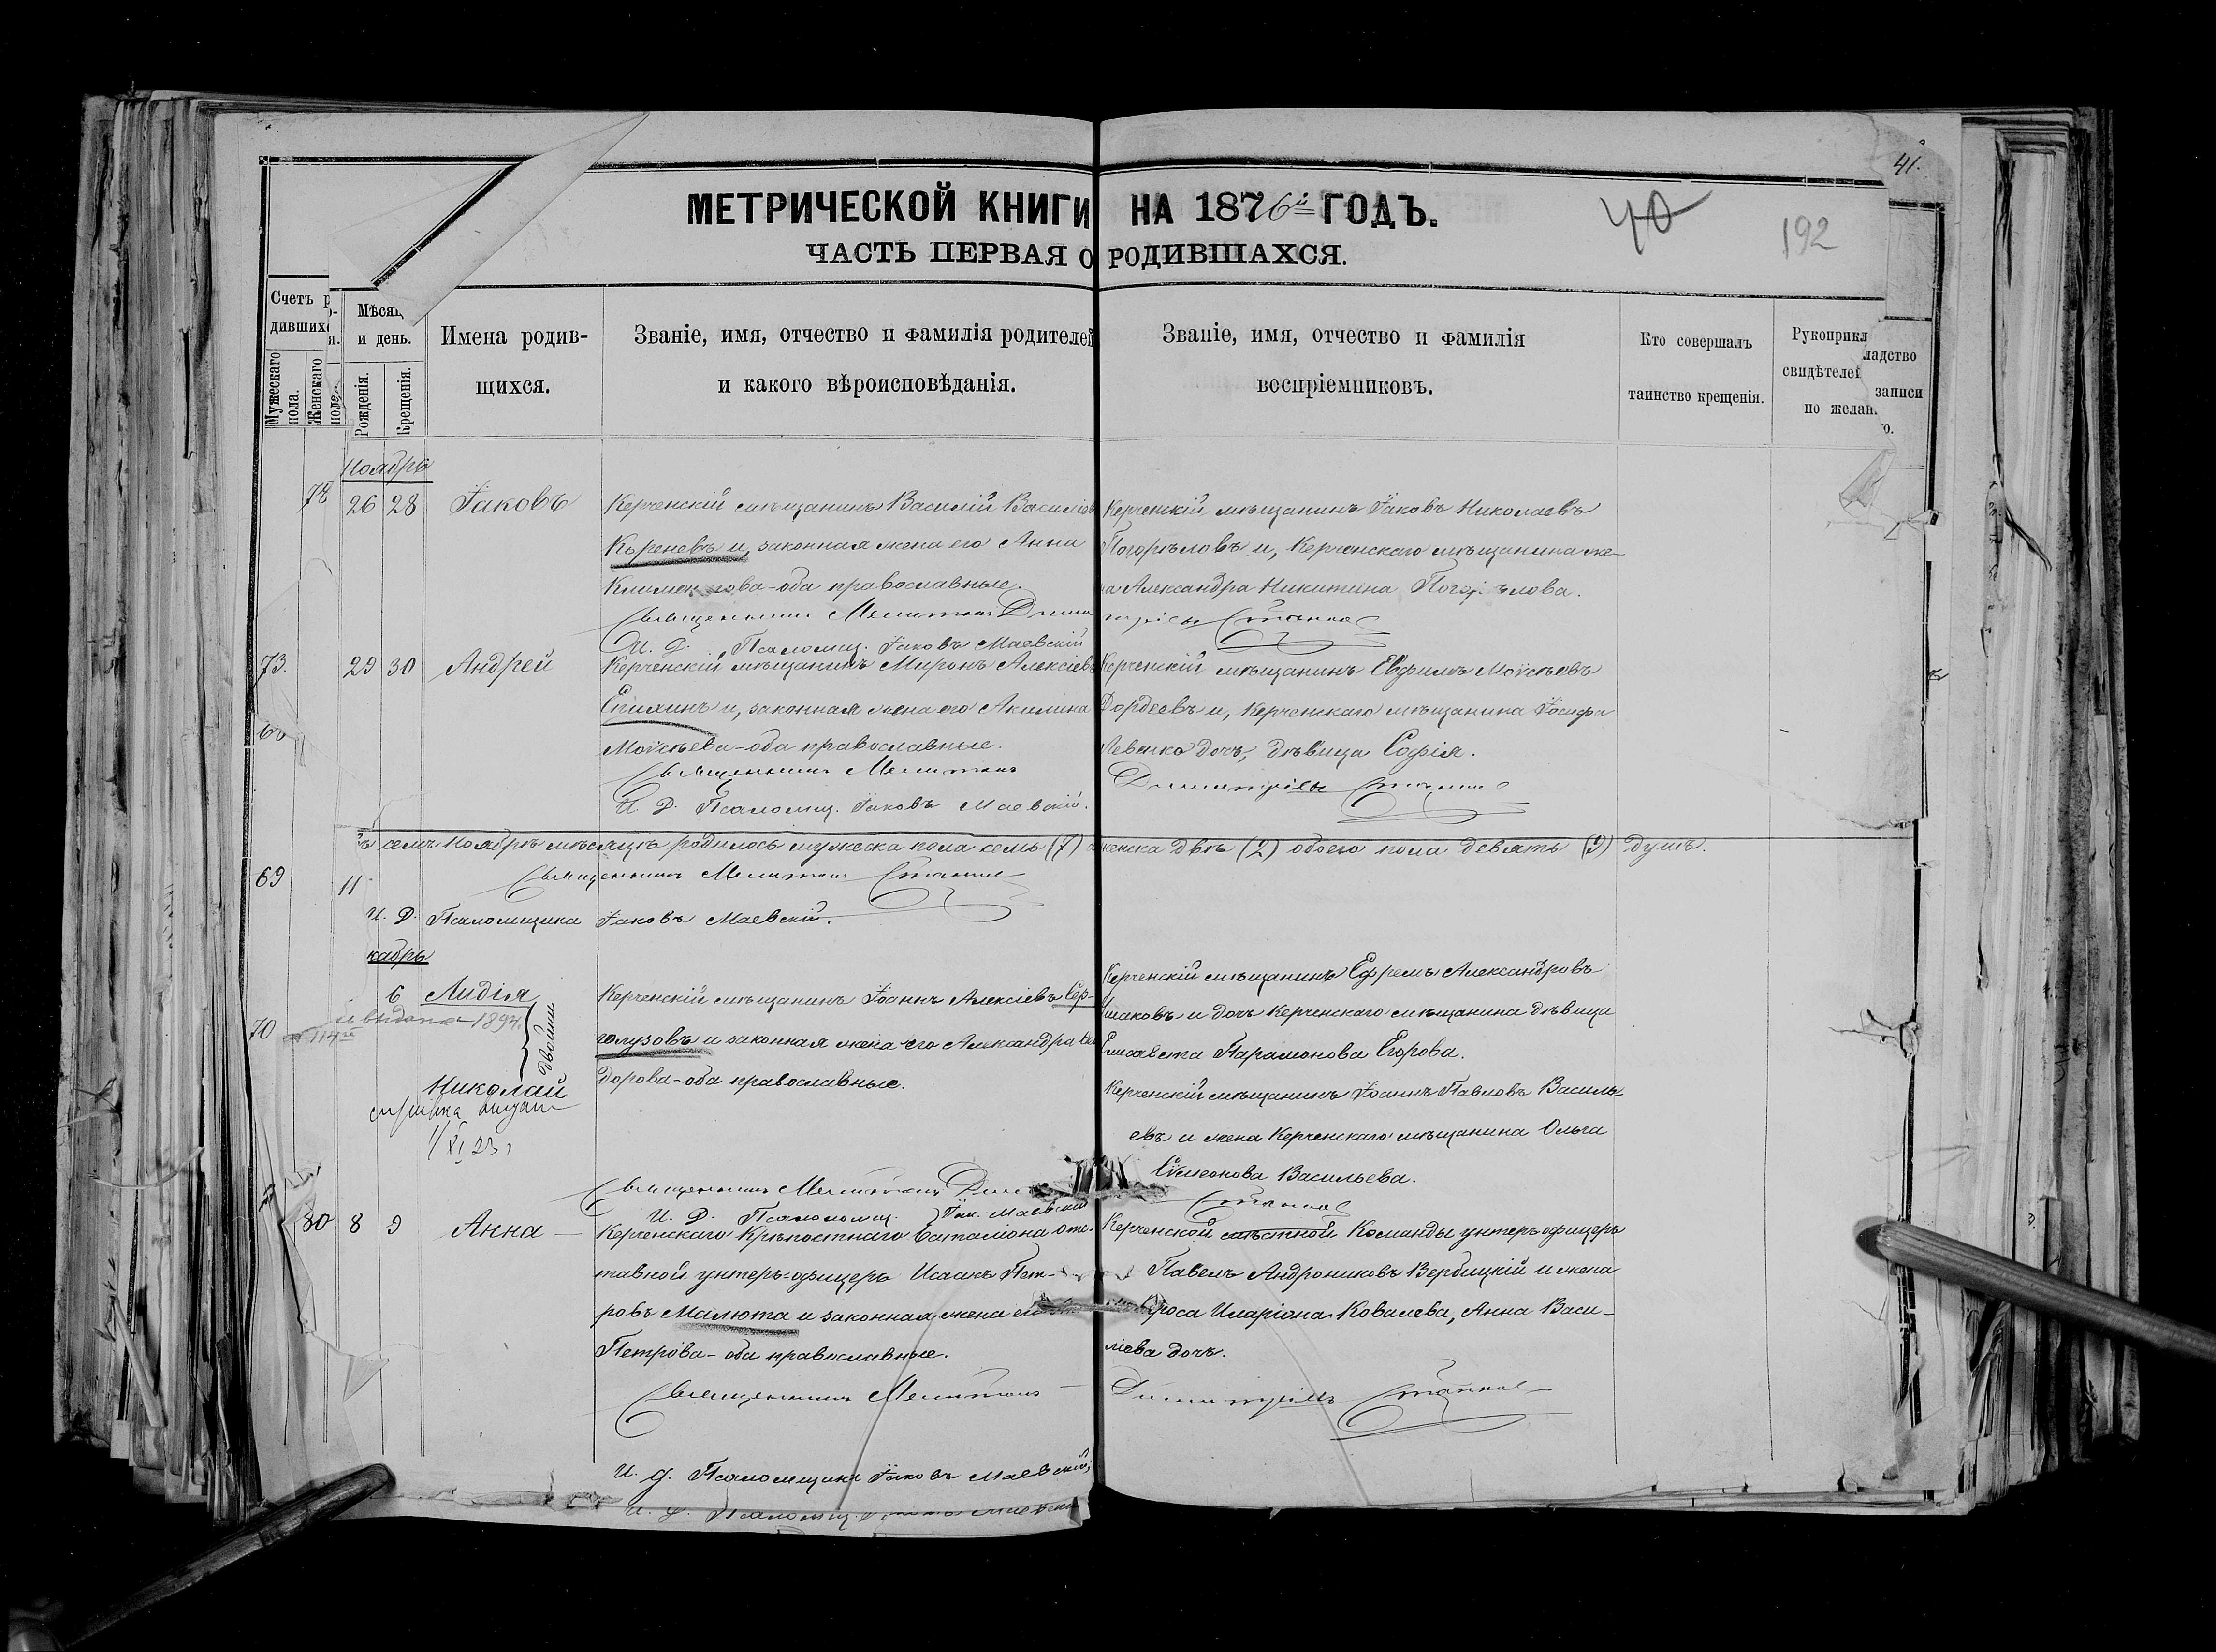 41.
МЕТРИЧЕСКОЙ КНИГИ НА 1876й ГОДЪ.
40
192
ЧАСТЬ ПЕРВАЯ О РОДИВШАХСЯ.
Счетъ р
дившихс
Мѣсяц
и день.
Мужескаго пола.
Женскаго
Рожденія.
Крещенія.
Имена родив-
щихся.
Званіе, имя, отчество и фамилія родителей
и какого вѣроисповѣданія.
Званіе, имя, отчество и фамилія
воспріемниковъ.
Кто совершалъ
таинство крещенія.
Рукоприкл
ладство
свидѣтелей
записи
по желан.
Ноябрь
26 28 Іаковъ Керченскій мѣщанинъ Василій Василіев
Кореневъ и, законная жена его Анна
Климентова-оба православные.
Священникъ Мелитонъ
И. Д. Псаломщ. Іаковъ Маевскій
Керченскій мѣщанинъ Іаковъ Николаевъ
Погорѣловъ и, Керченскаго мѣщанина же-
на Александра Никитина Погорѣлова.
73. 29 30 Андрей Керченскій мѣщанинъ Миронъ Алексіевъ
и, законная жена его Акилина
Моѵсѣева-оба православные.
Священникъ Мелитонъ
И. Д. Псаломщ. Іаковъ Маевскій.
Керченскій мѣщанинъ Евфимъ Моѵсѣевъ
Гордѣевъ и, Керченскаго мѣщанина Іосифа
Левенко дочь, дѣвица Софія.
Димитріевъ
ъ семъ Ноябрѣ мѣсяцѣ родилось мужеска пола семь (7) женска двѣ (2) обоего пола девять (9) душъ.
69
11
Священникъ Мелитонъ
И. Д. Псаломщика Іаковъ Маевскій.
кабрь
6 Лидія
выдана 1894
70
двойни
Николай
Керченскій мѣщанинъ Іоаннъ Алексіевъ Сер-
голузовъ и законная жена его Александра Ѳео
дорова-оба православные.
Керченскій мѣщанинъ Ефремъ Александровъ
и дочь Керченскаго мѣщанина дѣвица
Елисавета Парамонова Егорова.
Керченскій мѣщанинъ Іоаннъ Павловъ Василь-
евъ и жена Керченскаго мѣщанина Ольга
Сѵмеонова Васильева.
Священникъ Мелитонъ
И. Д. Псаломщ. Іак. Маевскій
80 8 9 Анна Керченскаго Крѣпостнаго баталіона отс-
тавной унтеръ-офицеръ Исаакъ Пет-
ровъ Малюта и законная жена его
Петрова-оба православные.
Священникъ Мелитонъ
Керченской мѣстной Команды унтеръ офицеръ
Павелъ Андрониковъ Вербицкій и жена
Иларіона Ковалева, Анна Васи-
ліева дочь.
Димитріевъ
И. д. Псаломщика Іаковъ Маевскій,
И. д. Псаломщ.